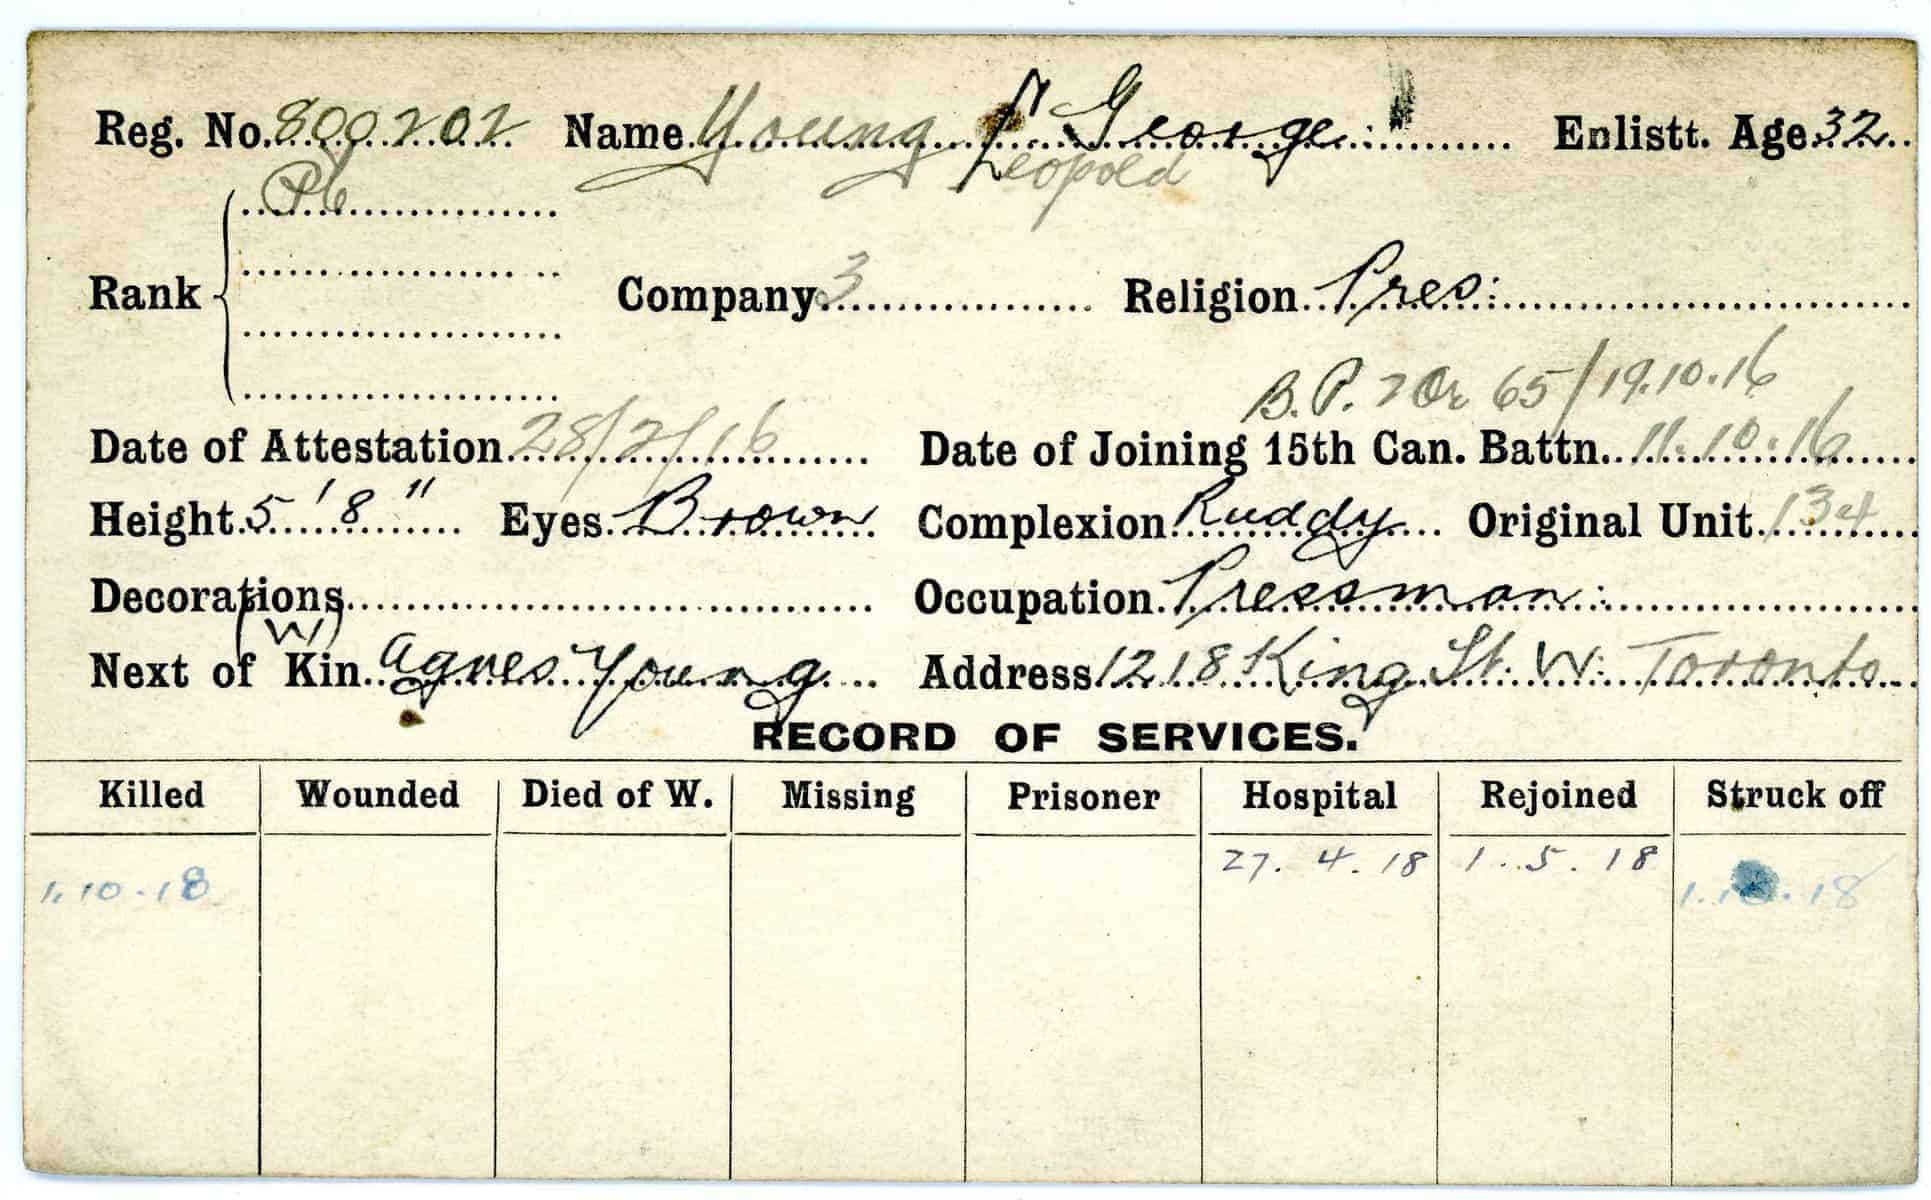 Reg. No. 800202 Name Young L. George Enlistt. Age 32
Leopold
Rank Pte
Company 3 Religion Pres:
B.P. 2 Or 65/19.10.16
Date of Attestation 28/2/16 Date of Joining 15th Can. Battn. 11.10.16
Height 5'8" Eyes Brown Complexion Ruddy Original Unit 134
Decorations Occupation Pressman:
(W)
Next of Kin Agnes Young Address 1218 King St. W. Toronto
RECORD OF SERVICES.
Killed Wounded Died of W. Missing Prisoner Hospital Rejoined Struck off
27. 4. 18 1. 5. 18
1.10.18 1.10.18